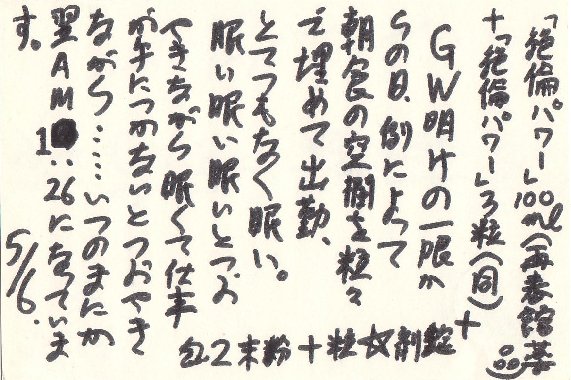 「絶倫パワー」100ml(再春館薬
+「絶倫パワー」3粒(同)+
錠剤粒+粉末2包
GW明けの一限か
らの日、例によって
朝食の空欄を粒々
で埋めて出勤、
とてつもなく眠い。
眠い眠い眠いとつぶ
やきながら眠くて仕事
が手につかないとつぶやき
ながら……いつのまにか
翌AM1:26になっていま
す。
5/6.